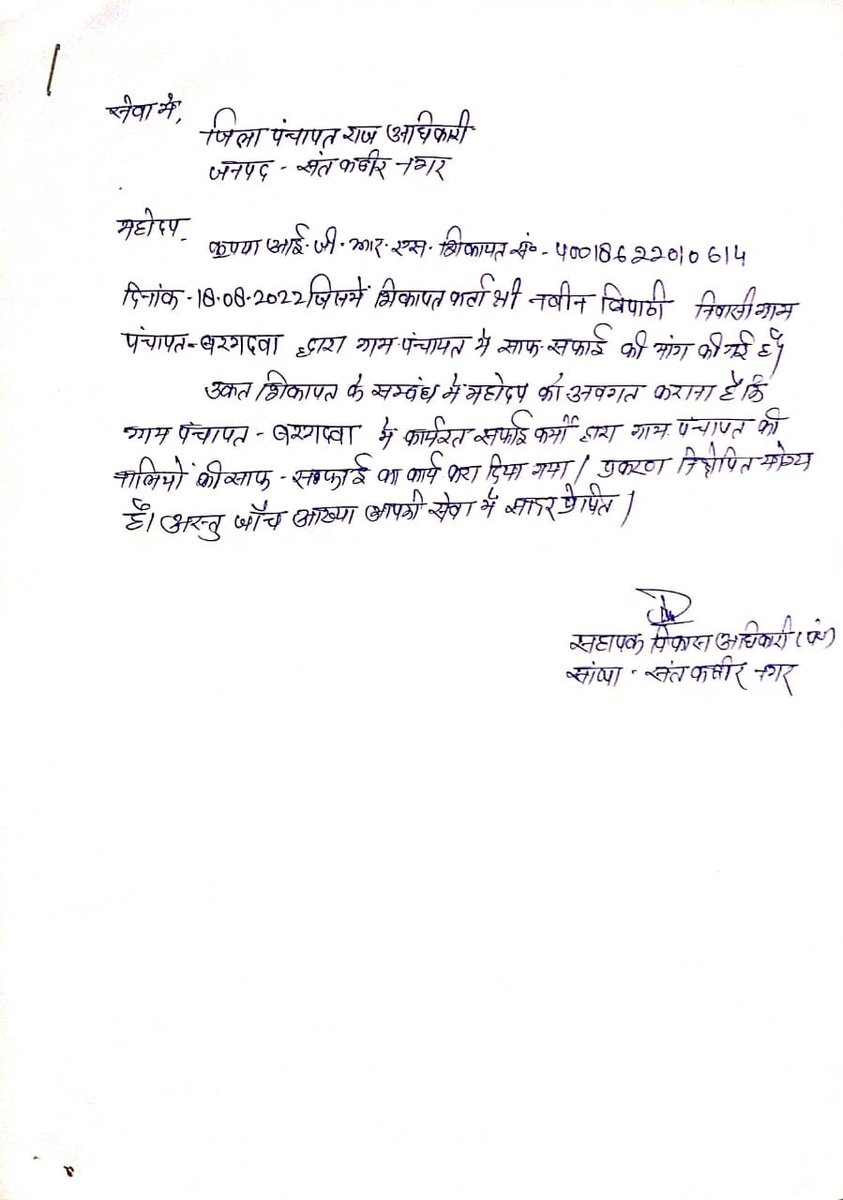 सेवा में,
जिला पंचायत राज अधिकारी
जनपद - संत कबीर नगर
महोदय
कृपया आई.जी.आर.एस. शिकायत सं०-40018622010614
दिनांक-18.08.2022 जिसमें शिकायत कर्ता श्री नवीन त्रिपाठी निवासी ग्राम
पंचायत-बरगदवा द्वारा ग्राम पंचायत में साफ-सफाई की मांग की गई है।
उक्त शिकायत के सम्बंध में महोदय को अवगत कराना है कि
ग्राम पंचायत - बरगदवा में कार्यरत सफाई कर्मी द्वारा ग्राम पंचायत की
नालियों की साफ - सफाई का कार्य करा दिया गया। प्रकरण निक्षेपित योग्य
है। अस्तु जाँच आख्या आपकी सेवा में सादर प्रेषित।
सहायक विकास अधिकारी (पं०)
सांथा - संत कबीर नगर